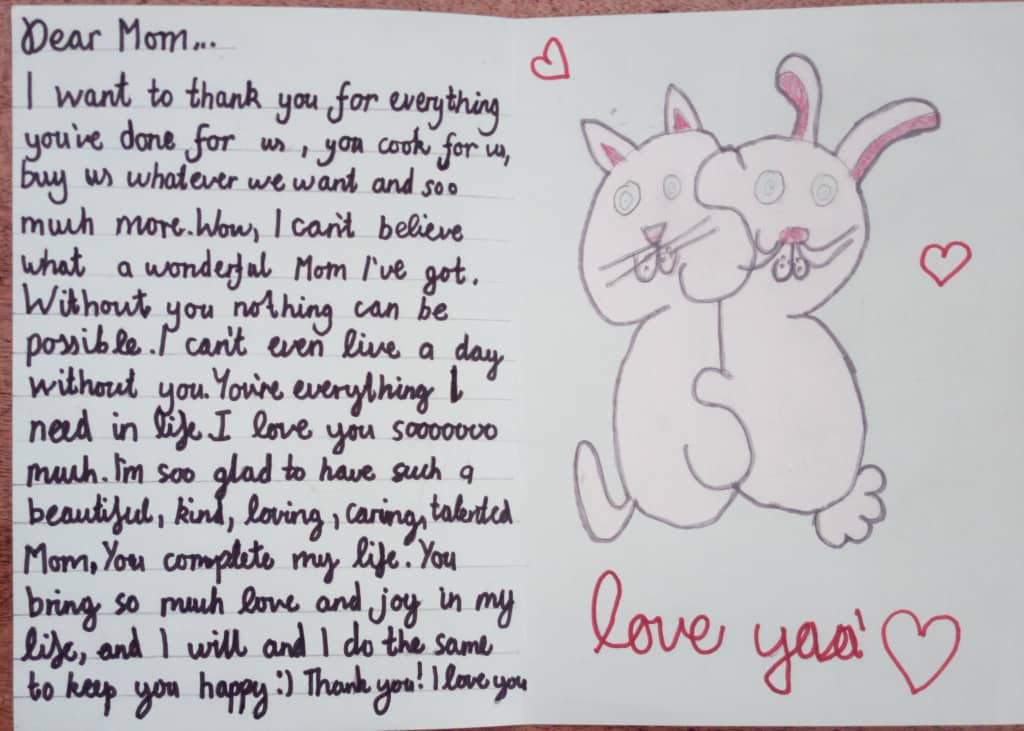 Dear Mom...
I want to thank you for everything
you've done for us, you cook for us,
buy us whatever we want and soo
much more. Wow, I can't believe
what a wonderful Mom I've got.
Without you nothing can be
possible. I can't even live a day
without you. You're everything I
need in life. I love you sooooooo
much. I'm soo glad to have such a
beautiful, kind, loving, caring, talented
Mom, You complete my life. You
bring so much love and joy in my
life, and I will and I do the same
to keep you happy :) Thank you! I love you
love yaa!